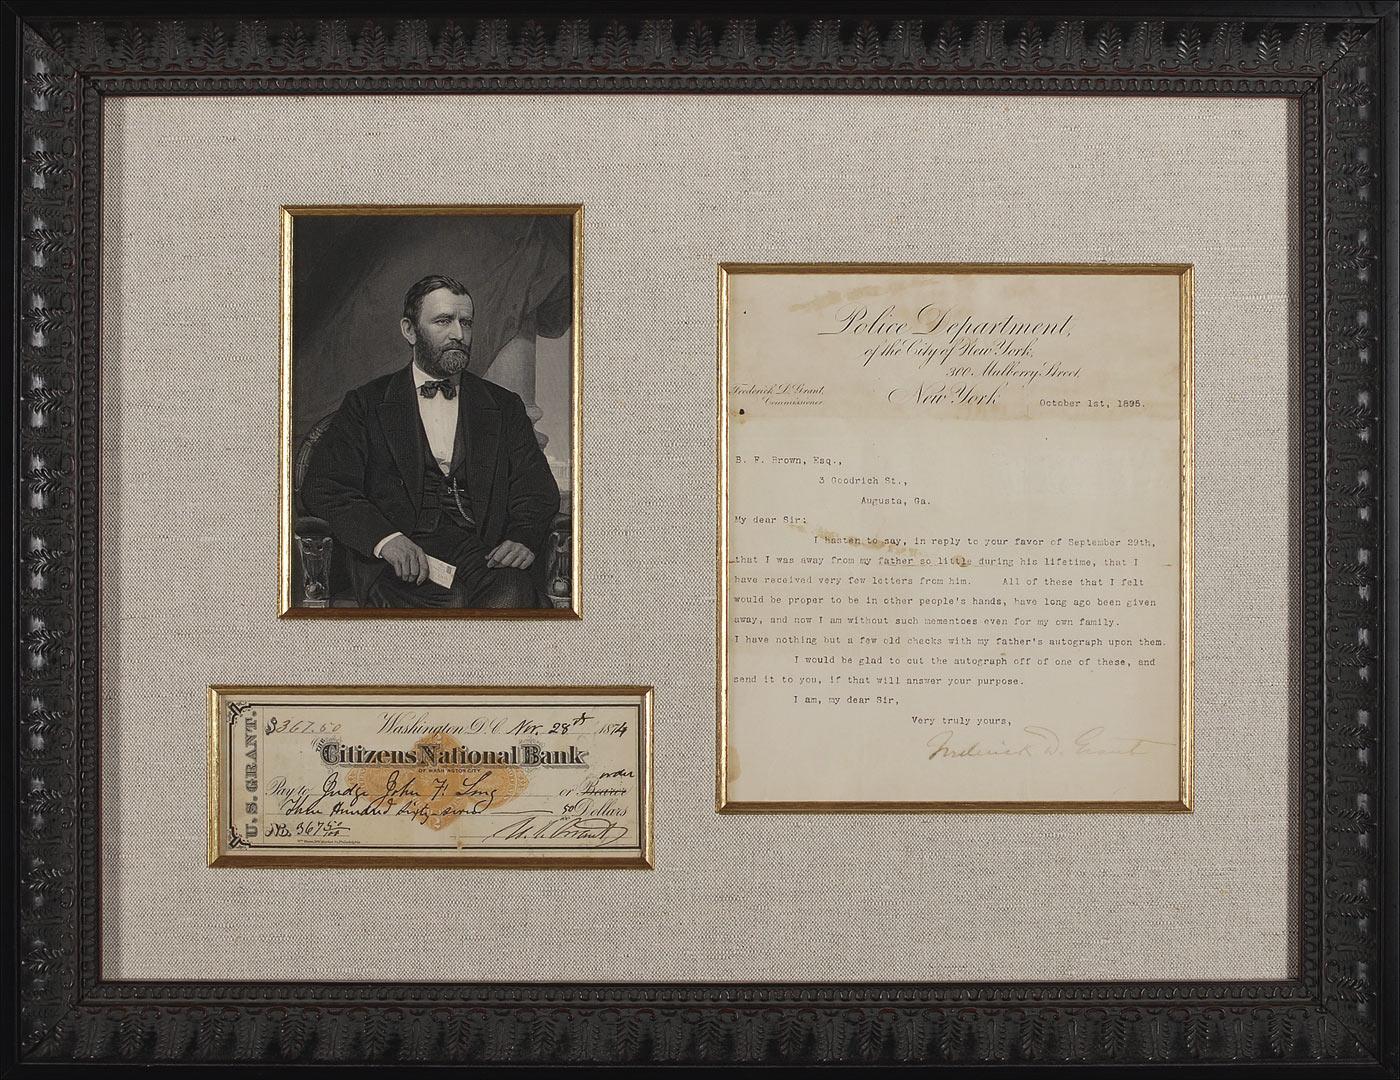 Police Department,
of the City of New York,
300 Mulberry Street,
Frederick D. Grant,
Commissioner
New York
October 1st, 1895.
B. F. Brown, Esq.,
3 Goodrich St.,
Augusta, Ga.
My dear Sir:
I hasten to say, in reply to your favor of September 29th,
that I was away from my father so little during his lifetime, that I
have received very few letters from him. All of these that I felt
would be proper to be in other people's hands, have long ago been given
away, and now I am without such mementoes even for my own family.
I have nothing but a few old checks with my father's autograph upon them.
I would be glad to cut the autograph off of one of these, and
send it to you, if that will answer your purpose.
I am, my dear Sir,
Very truly yours,
Frederick D. Grant
U.S. GRANT.
$367.50 Washington, D.C. Nov. 28th 1874
THE Citizens National Bank
OF WASHINGTON CITY
order
Pay to Judge John F. Long or Bearer
Three Hundred Sixty-seven 50/100 Dollars
No. 367 50/100 U.S. Grant